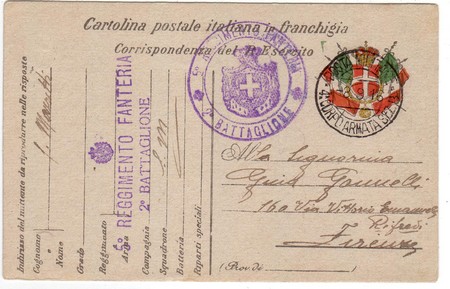 Cartolina postale italiana in franchigia
Corrispondenza del R. Esercito
5° REGGIMENTO FANTERIA
2° BATTAGLIONE
POSTA MILITARE
4° CORPO ARMATA SEZ.
Indirizzo del mittente da riprodurre nelle risposte
Cognome
Nome
Grado
Reggimento
Arma
Compagnia
Squadrone
Batteria
Riparti speciali
REGGIMENTO FANTERIA
2° BATTAGLIONE
Alla Signorina
160 Via Vittorio Emanuele
Rifredi
Firenze
(Prov. di )